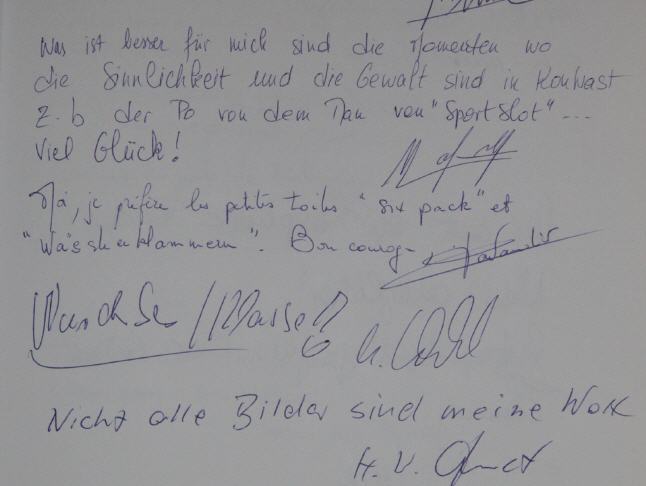 Was ist besser für mich sind die Momenten wo
die Sinnlichkeit und die Gewalt sind in Kontrast
z.b der Po von dem Man von "Sportslot" ...
Viel Glück!
je préfère les petites toiles "six pack" et
"Wäscheklammern". Bon courage
Klasse!
Nicht alle Bilder sind meine
H. V.